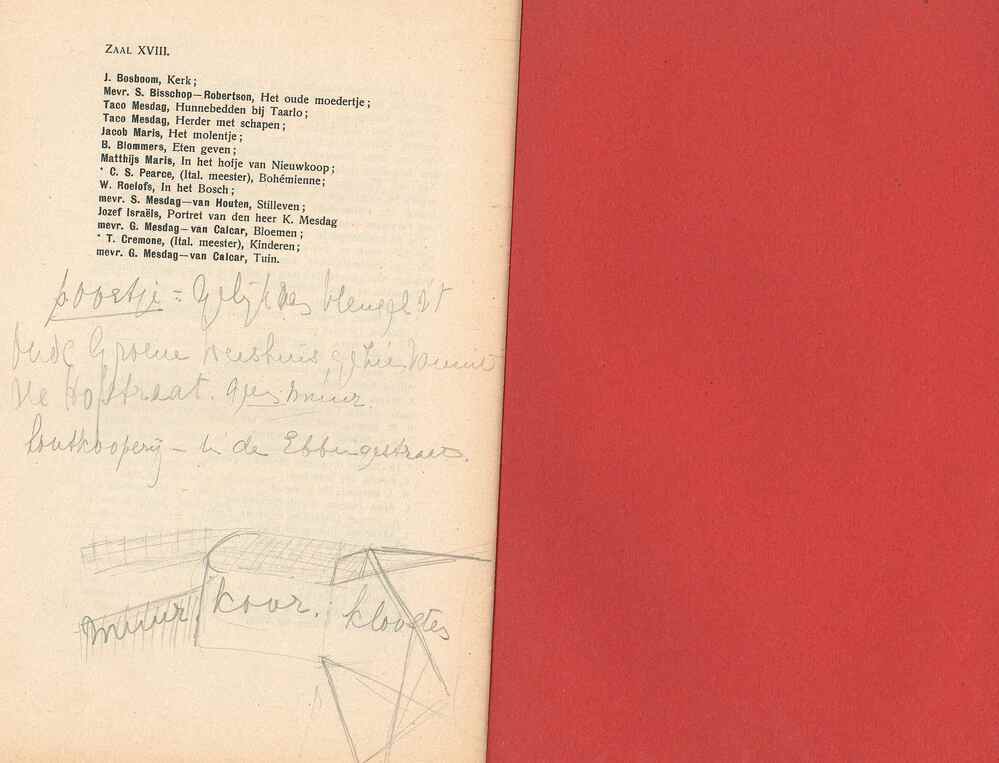 Zaal XVIII.
J. Bosboom, Kerk;
Mevr. S. Bisschop—Robertson, Het oude moedertje;
Taco Mesdag, Hunnebedden bij Taarlo;
Taco Mesdag, Herder met schapen;
Jacob Maris, Het molentje;
B. Blommers, Eten geven;
Matthijs Maris, In het hofje van Nieuwkoop;
* C. S. Pearce, (Ital. meester), Bohémienne;
W. Roelofs, In het Bosch;
mevr. S. Mesdag—van Houten, Stilleven;
Jozef Israëls, Portret van den heer K. Mesdag
mevr. G. Mesdag—van Calcar, Bloemen;
* T. Cremone, (Ital. meester), Kinderen;
mevr. G. Mesdag—van Calcar, Tuin.
poortje = gelijk
Groene Weeshuis,
de Hofstraat. muur.
houtkooperij – in de Ebbingestraat.
muur. koor. klooster